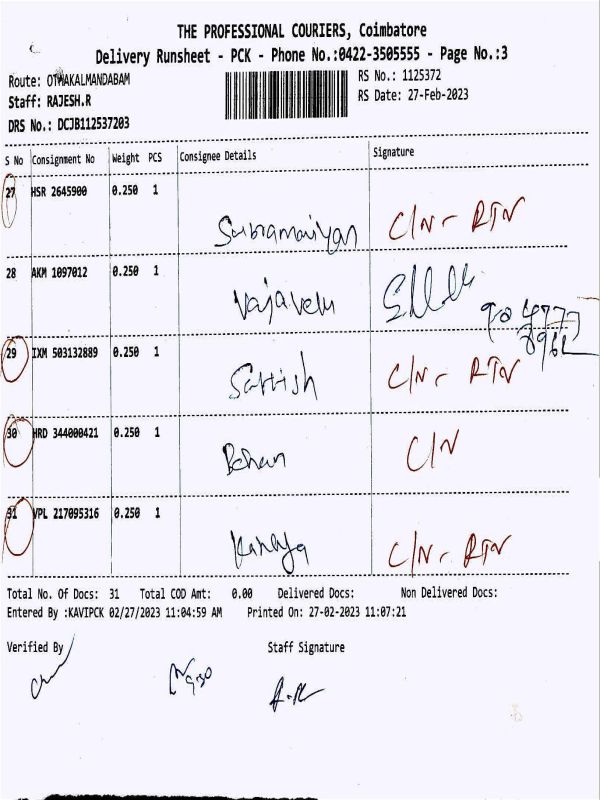 THE PROFESSIONAL COURIERS, Coimbatore
Delivery Runsheet - PCK - Phone No.:0422-3505555 - Page No.:3
Route: OTHAKALMANDABAM
RS No.: 1125372
Staff: RAJESH.R
RS Date: 27-Feb-2023
DRS No.: DCJB112537203
S No Consignment No Weight PCS Consignee Details Signature
27 HSR 2645900 0.250 1
C/N - RTN
28 AKM 1097012 0.250 1
Vajavelu
29 IXM 503132889 0.250 1
Sattish C/N - RTN
30 HRD 344000421 0.250 1
C/N
31 VPL 217095316 0.250 1
C/N - RTN
Total No. Of Docs: 31 Total COD Amt: 0.00 Delivered Docs: Non Delivered Docs:
Entered By :KAVIPCK 02/27/2023 11:04:59 AM Printed On: 27-02-2023 11:07:21
Verified By Staff Signature